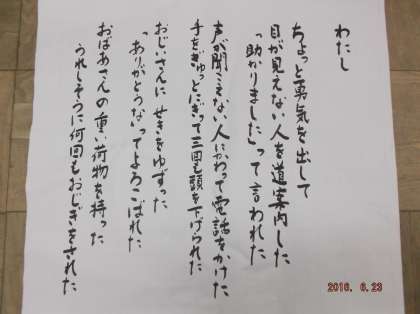 わたし
ちょっと勇気を出して
目が見えない人を道案内した
「助かりました」って言われた
声が聞こえない人にかわって電話をかけた
手をぎゅっとにぎって三回も頭を下げられた
おじいさんに せきをゆずった
「ありがとうなってよろこばれた
おばあさんの重い荷物を持った
うれしそうに何回もおじぎをされた
2016. 6.23